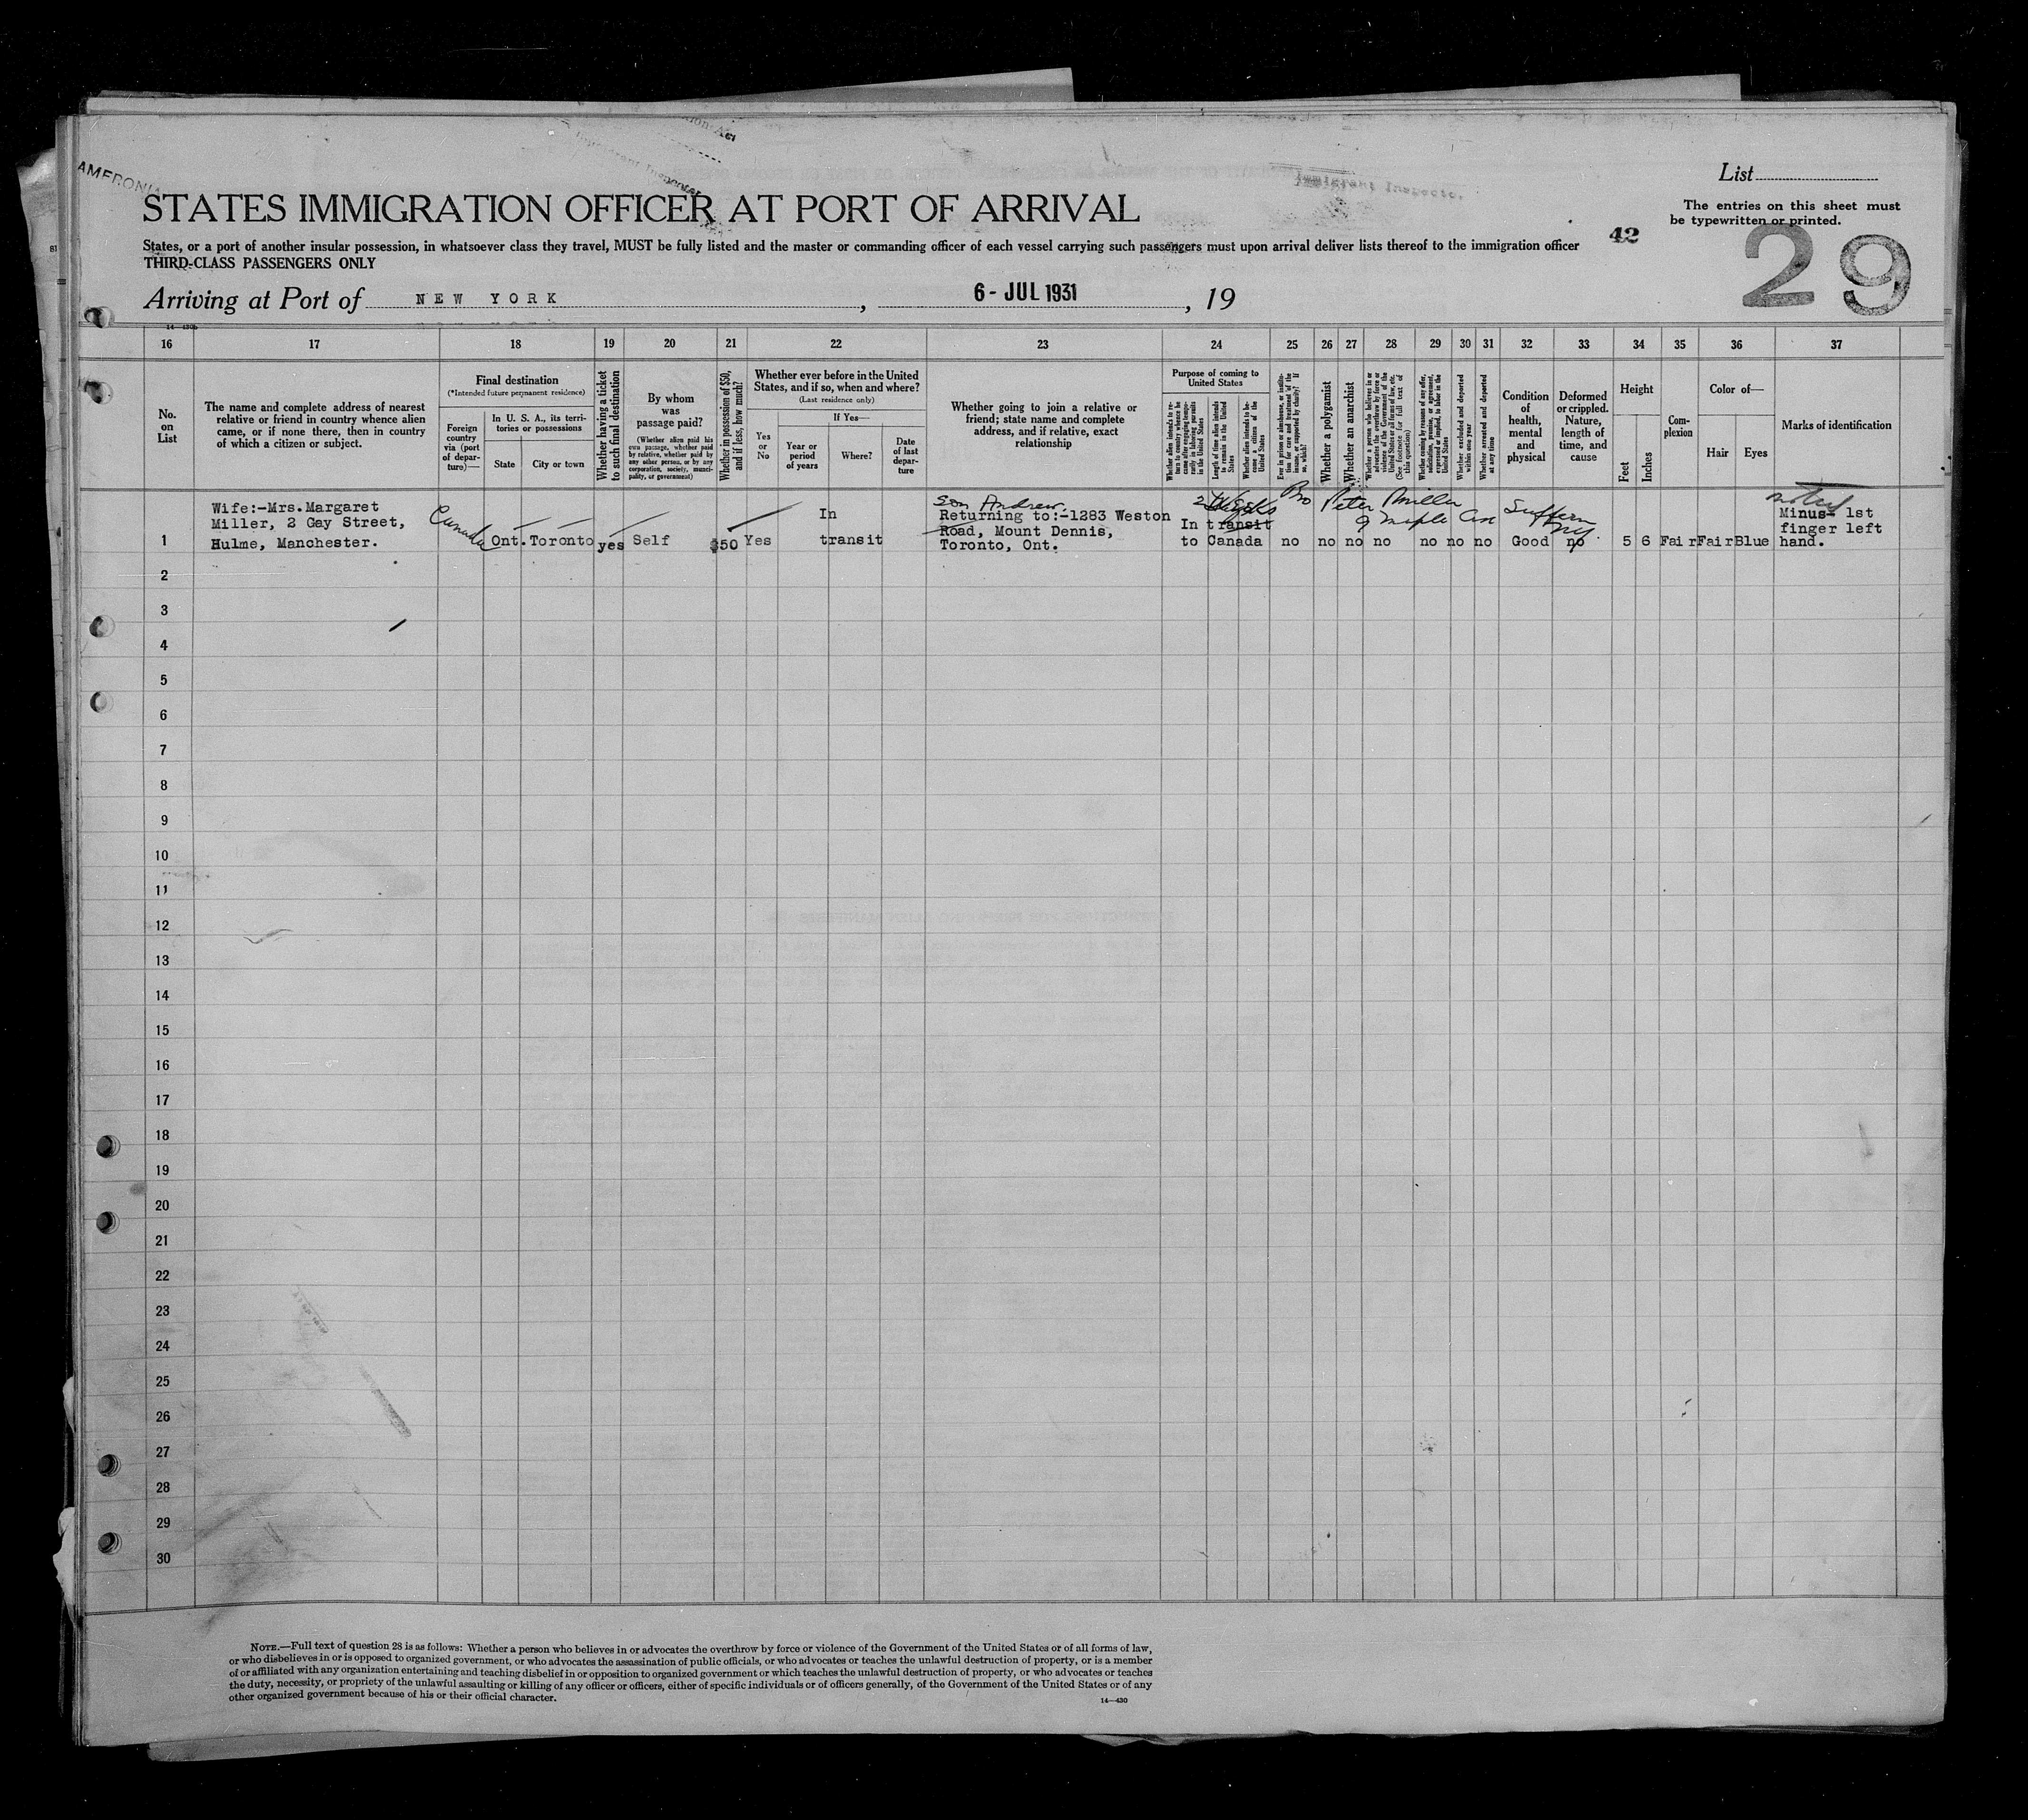 List
The entries on this sheet must
be typewritten or printed.
AMERONIA
Immigrant Inspector
STATES IMMIGRATION OFFICER AT PORT OF ARRIVAL
States, or a port of another insular possession, in whatsoever class they travel, MUST be fully listed and the master or commanding officer of each vessel carrying such passengers must upon arrival deliver lists thereof to the immigration officer
THIRD-CLASS PASSENGERS ONLY
42
29
Arriving at Port of NEW YORK, 6 - JUL 1931, 19
16 17 18 19 20 21 22 23 24 25 26 27 28 29 30 31 32 33 34 35 36 37
No. on List
The name and complete address of nearest relative or friend in country whence alien came, or if none there, then in country of which a citizen or subject.
Final destination
(*Intended future permanent residence)
Foreign country via (port of departure)—
In U. S. A., its territories or possessions
State
City or town
Whether having a ticket to such final destination
By whom was passage paid?
(Whether alien paid his own passage, whether paid by relative, whether paid by any other person, or by any corporation, society, municipality, or government)
Whether in possession of $50, and if less, how much?
Whether ever before in the United States, and if so, when and where?
(Last residence only)
Yes or No
If Yes—
Year or period of years
Where?
Date of last departure
Whether going to join a relative or friend; state name and complete address, and if relative, exact relationship
Purpose of coming to United States
Length of time alien intends to remain in the United States
Whether alien intends to become a citizen of the United States
Whether a polygamist
Whether an anarchist
Whether excluded and deported within one year
Whether arrested and deported at any time
Condition of health, mental and physical
Deformed or crippled. Nature, length of time, and cause
Height
Feet
Inches
Complexion
Color of—
Hair
Eyes
Marks of identification
Wife:-Mrs.Margaret
Miller, 2 Gay Street,
Hulme, Manchester.
Canada
Ont. Toronto yes Self $50 Yes
In
transit
Son Andrew.
Returning to:-1283 Weston
Road, Mount Dennis,
Toronto, Ont.
2 Weeks
In transit
to Canada
Bro Peter Miller
9 Maple Ave
Suffern
NY.
no no no no no no no Good no 5 6 Fair Fair Blue
noted
Minus- 1st
finger left
hand.
1
2
3
4
5
6
7
8
9
10
11
12
13
14
15
16
17
18
19
20
21
22
23
24
25
26
27
28
29
30
NOTE.—Full text of question 28 is as follows: Whether a person who believes in or advocates the overthrow by force or violence of the Government of the United States or of all forms of law,
or who disbelieves in or is opposed to organized government, or who advocates the assassination of public officials, or who advocates or teaches the unlawful destruction of property, or is a member
of or affiliated with any organization entertaining and teaching disbelief in or opposition to organized government or which teaches the unlawful destruction of property, or who advocates or teaches
the duty, necessity, or propriety of the unlawful assaulting or killing of any officer or officers, either of specific individuals or of officers generally, of the Government of the United States or of any
other organized government because of his or their official character.
14—430